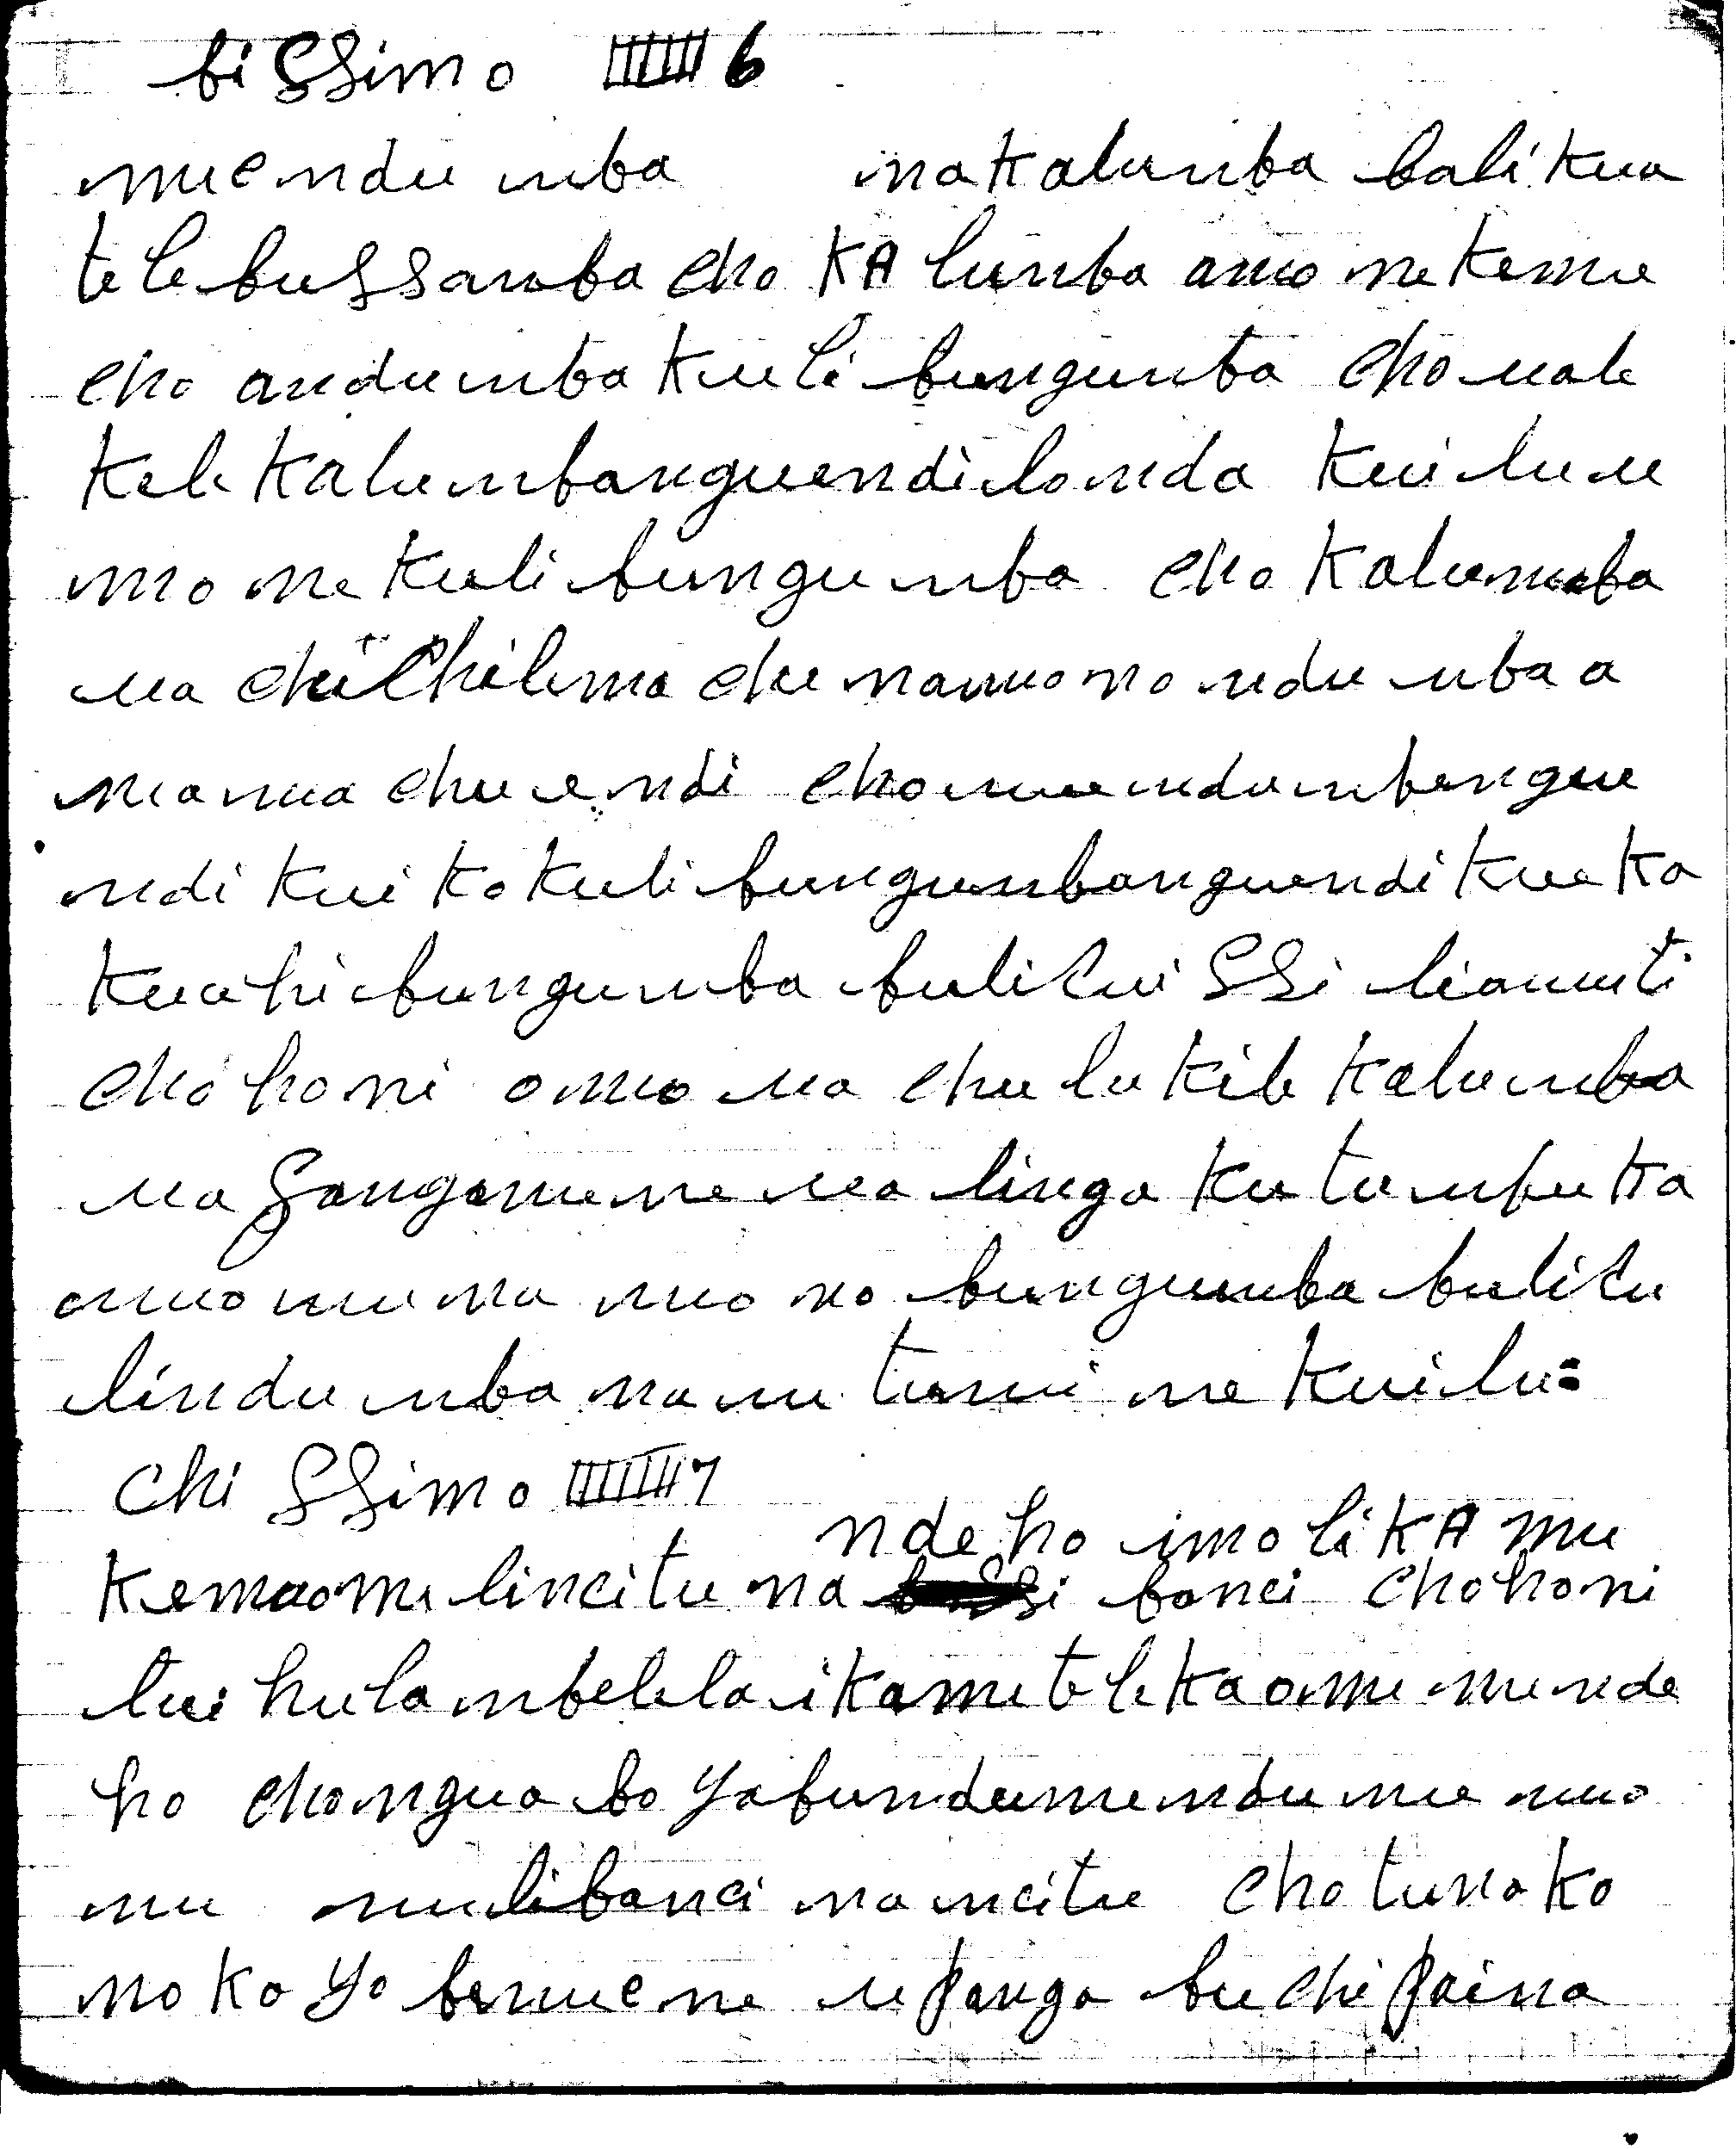 bissimo IIIIII 6
muendu mba nakalumba balikua
telebussamba cho KA lumba amo nekemue
cho andumba kuli bungumba cho uale
kele kalumbanguendilonda kuilu u
mo ne kuli bungumba cho kalumba
ua chichilema chu namono ndumba a
mana chuendi chomuendumbangue
ndi kuiko kuli bungumbanguendi kueka
kuahi bungumba bulitui ssi liamuti
cho honi omo ua chulukile kalumba
ua sanganene ua linga ku tumbuka
omo mu na mo no bungumba bulitu
lindumba na mu tumine kuilu =
chi ssimo IIIIIII 7
ndeho imo liKA mu
kemaomu lincitu na banci chohoni
tui hulambelela ikametele kaomu munde
ho chongua bo yabundumundumuemo
mu mulibanci na ncitu cho tunako
noko yo bemuene upanga buchi paina